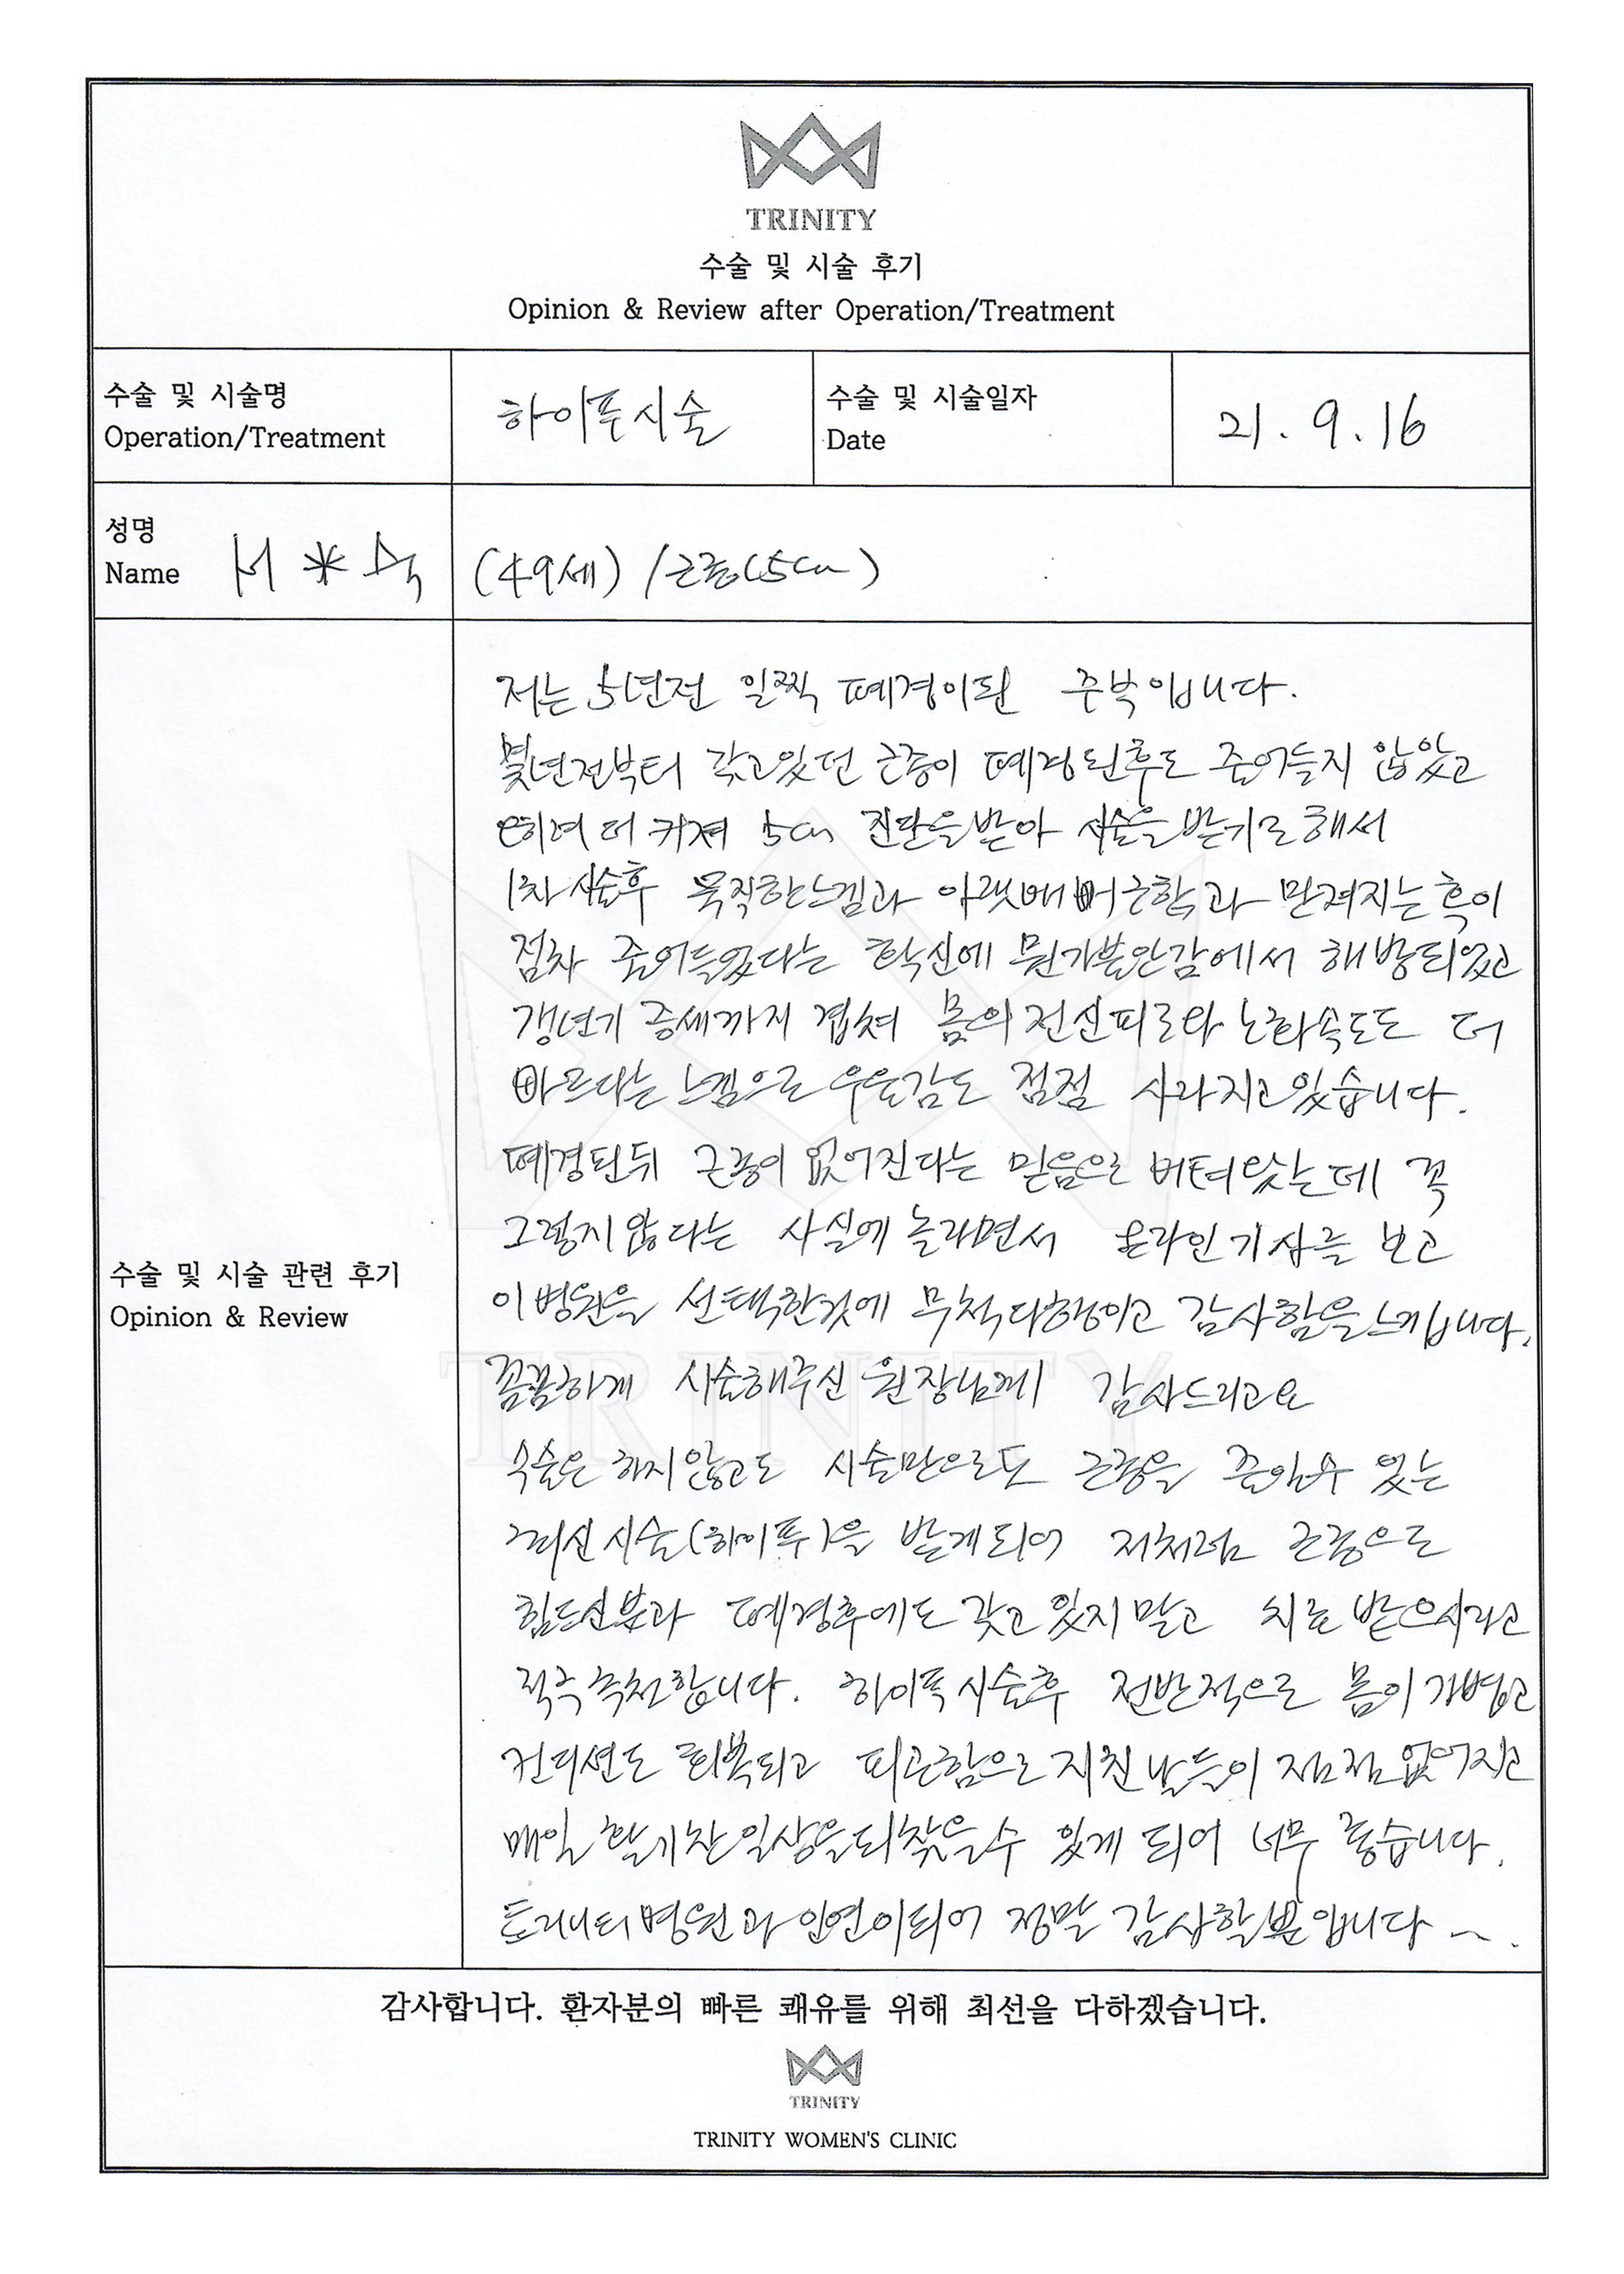 TRINITY
수술 및 시술 후기
Opinion & Review after Operation/Treatment
수술 및 시술명
Operation/Treatment
하이푸시술
수술 및 시술일자
Date
21. 9. 16
성명
Name
서 * 숙
(49세) / 근종(5cm)
수술 및 시술 관련 후기
Opinion & Review
저는 5년전 일찍 폐경이된 주부입니다.
몇년전부터 갖고있던 근종이 폐경된후도 줄어들지 않았고
오히려 더 커져 5cm 진단을받아 시술을받기로해서
1차시술후 묵직한느낌과 아랫배뻐근함과 만져지는 혹이
점차 줄어들었다는 확신에 뭔가불안감에서 해방되었고
갱년기 증세까지 겹쳐 몸의 전신피로와 노화속도도 더
빠르다는 느낌으로 우울감도 점점 사라지고있습니다.
폐경된뒤 근종이 없어진다는 믿음으로 버텨왔는데 꼭
그렇지않다는 사실에 놀라면서 온라인기사를 보고
이병원을 선택한것에 무척다행이고 감사함을느낍니다.
꼼꼼하게 시술해주신 원장님께 감사드리고요
수술은 하지않고도 시술만으로도 근종을 줄일수 있는
최신시술(하이푸)을 받게되어 저처럼 근종으로
힘드신분과 폐경후에도 갖고있지말고 치료받으시라고
적극추천합니다. 하이푸시술후 전반적으로 몸이가볍고
컨디션도 회복되고 피곤함으로지친날들이 점점없어지고
매일 활기찬일상을되찾을수 있게 되어 너무 좋습니다.
트리니티병원과 인연이되어 정말 감사할뿐입니다 ~.
감사합니다. 환자분의 빠른 쾌유를 위해 최선을 다하겠습니다.
TRINITY
TRINITY WOMEN'S CLINIC